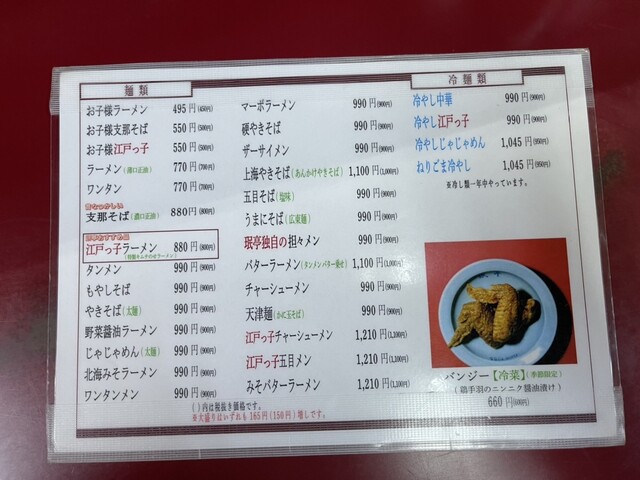 麺類
お子様ラーメン 495円(450円)
お子様支那そば 550円(500円)
お子様江戸っ子 550円(500円)
ラーメン(薄口正油) 770円(700円)
ワンタン 770円(700円)
昔なつかしい
支那そば(濃口正油) 880円(800円)
江戸っ子ラーメン 880円(800円)
(特製キムチのせラーメン)
タンメン 990円(900円)
もやしそば 990円(900円)
やきそば(太麺) 990円(900円)
野菜醤油ラーメン 990円(900円)
じゃじゃめん(太麺) 990円(900円)
北海みそラーメン 990円(900円)
ワンタンメン 990円(900円)
マーボラーメン 990円(900円)
硬やきそば 990円(900円)
ザーサイメン 990円(900円)
上海やきそば(あんかけやきそば) 1,100円(1,000円)
五目そば(塩味) 990円(900円)
うまにそば(広東麺) 990円(900円)
珉亭独自の担々メン 990円(900円)
バターラーメン(タンメンバター乗せ) 1,100円(1,000円)
チャーシューメン 990円(900円)
天津麺(かに玉そば) 990円(900円)
江戸っ子チャーシューメン 1,210円(1,100円)
江戸っ子五目メン 1,210円(1,100円)
みそバターラーメン 1,210円(1,100円)
( )内は税抜き価格です。
※大盛りはいずれも165円(150円)増しです。
冷麺類
冷やし中華 990円(900円)
冷やし江戸っ子 990円(900円)
冷やしじゃじゃめん 1,045円(950円)
ねりごま冷やし 1,045円(950円)
※冷し類一年中やっています。
バンジー【冷菜】(季節限定)
(鶏手羽のニンニク醤油漬け)
660円(600円)